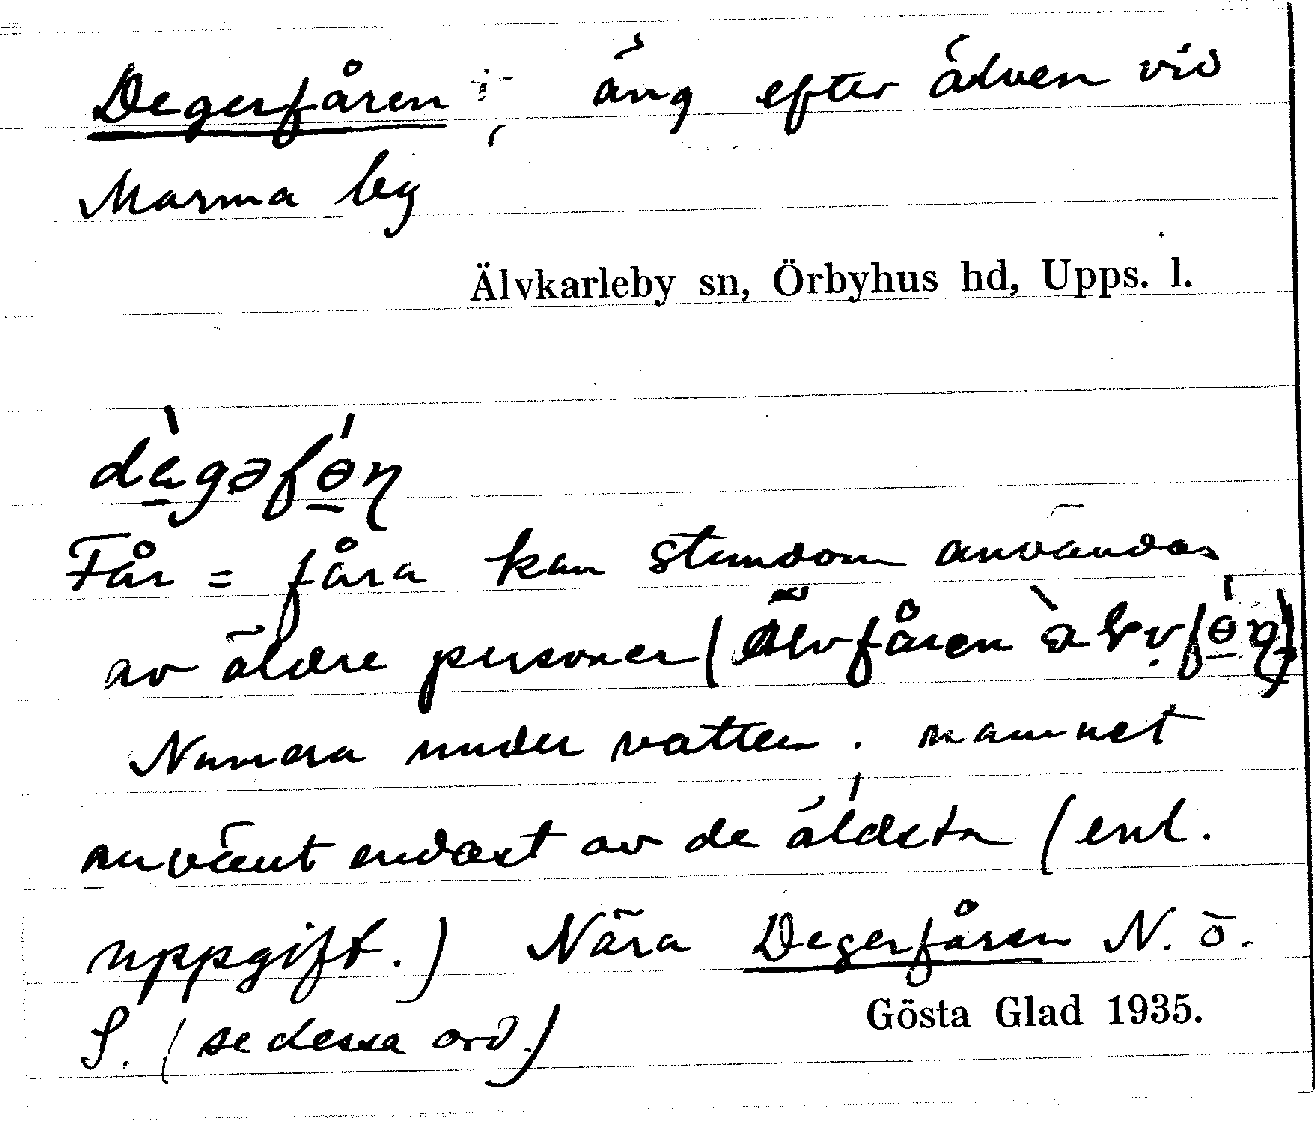 Degerfåren ; äng efter älven vid
Marma by
Älvkarleby sn, Örbyhus hd, Upps. l.
dàgəfɵ́n
Får = fåra kan stundom användas
av äldre personer (Älvfåren
Numera under vatten. namnet
använt endast av de äldsta (enl.
uppgift.) Nära Degerfåren N. ö.
S. (se dessa ord.)
Gösta Glad 1935.